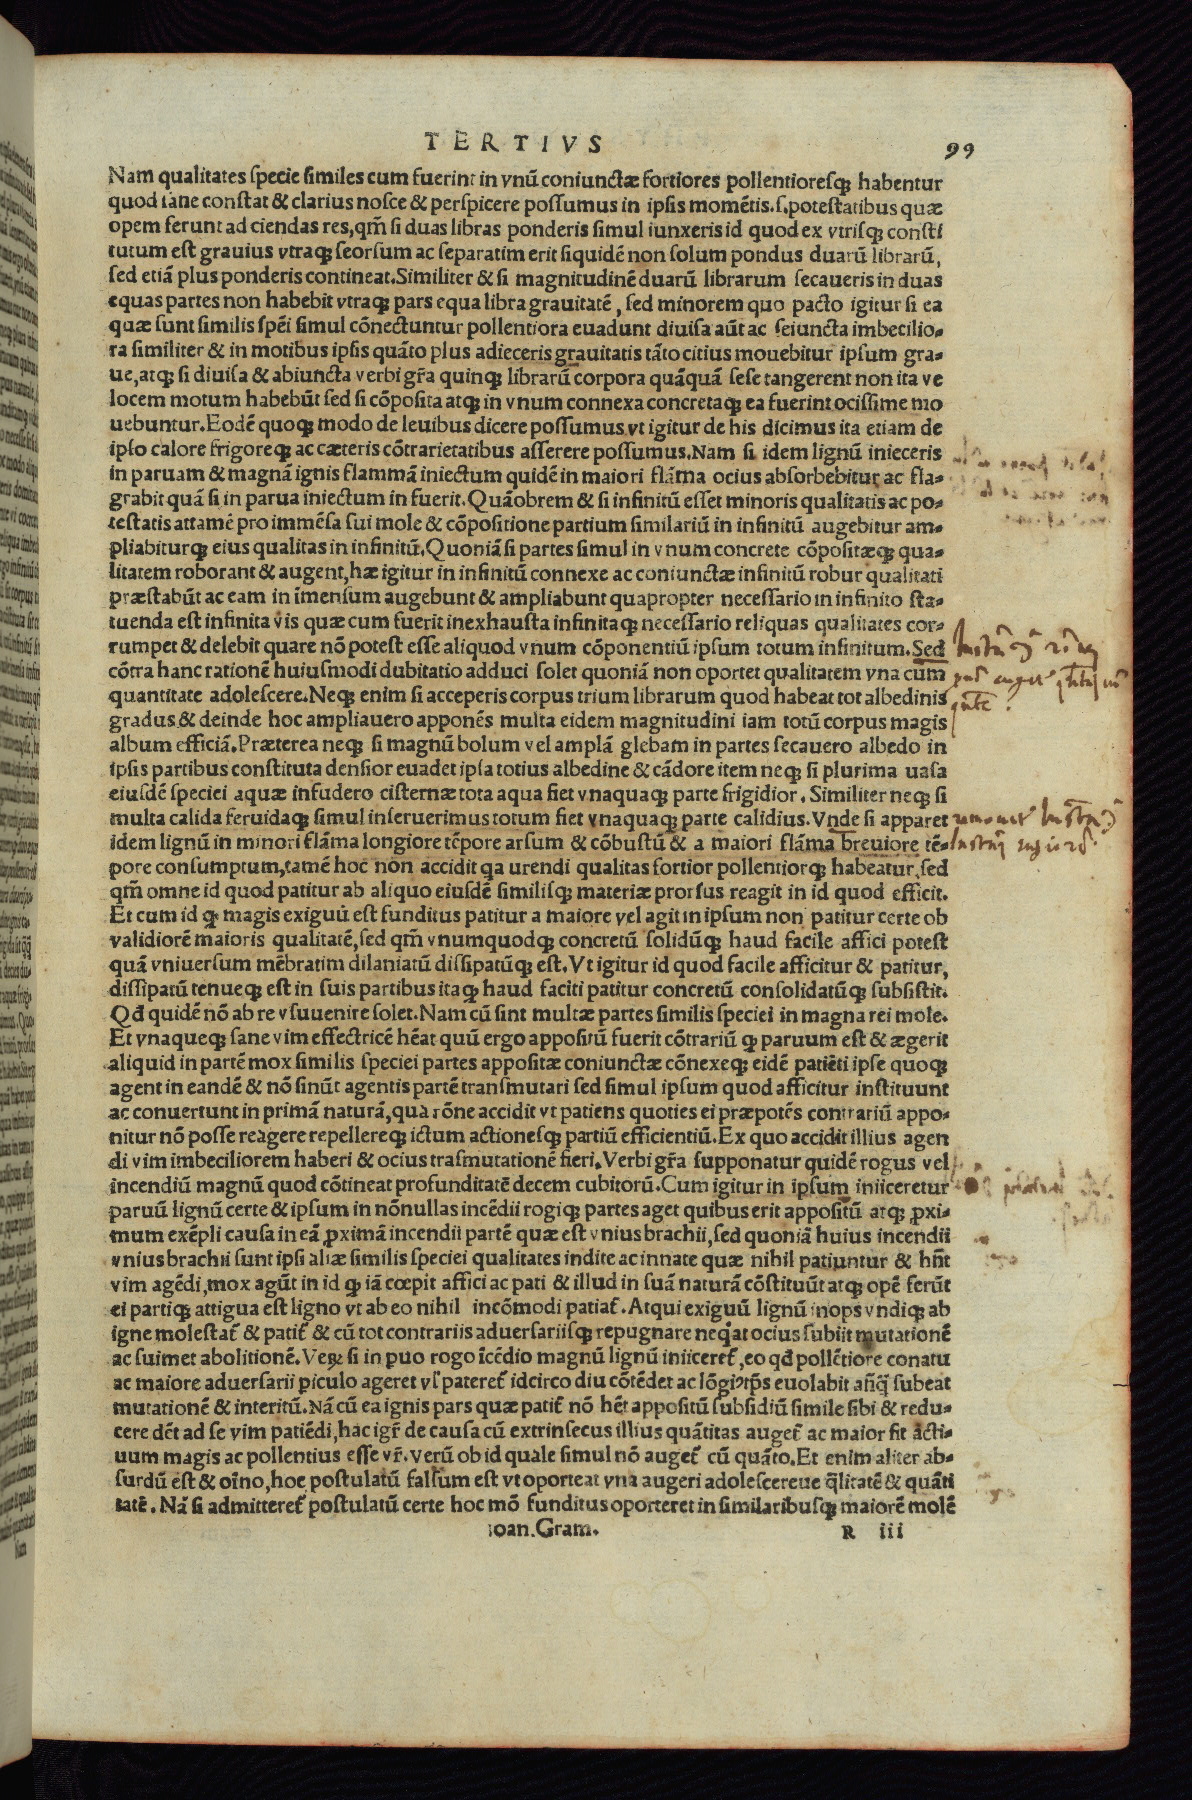 TERTIVS
99
Nam qualitates specie similes cum fuerint in vnũ coniunctæ fortiores pollentioresq; habentur
quod sane constat & clarius nosce & perspicere possumus in ipsis momẽtis.s.potestatibus quæ
opem ferunt ad ciendas res,qm̃ si duas libras ponderis simul iunxeris id quod ex vtrisq; consti
tutum est grauius vtraq; seorsum ac separatim erit siquidẽ non solum pondus duarũ librarũ,
sed etiã plus ponderis contineat.Similiter & si magnitudinẽ duarũ librarum secaueris in duas
equas partes non habebit vtraq; pars equa libra grauitatẽ, sed minorem quo pacto igitur si ea
quæ sunt similis spẽi simul cõnectuntur pollentiora euadunt diuisa aũt ac seiuncta imbecilio-
ra similiter & in motibus ipsis quãto plus adieceris grauitatis tãto citius mouebitur ipsum gra-
ue,atq; si diuisa & abiuncta verbi gr̃a quinq; librarũ corpora quãquã sese tangerent non ita ve
locem motum habebũt sed si cõposita atq; in vnum connexa concretaq; ea fuerint ocissime mo
uebuntur.Eodẽ quoq; modo de leuibus dicere possumus,vt igitur de his dicimus ita etiam de
ipso calore frigoreq; ac cæteris cõtrarietatibus asserere possumus.Nam si idem lignũ inieceris
in paruam & magnã ignis flammã iniectum quidẽ in maiori flãma ocius absorbebitur ac fla-
grabit quã si in parua iniectum in fuerit.Quãobrem & si infinitũ esset minoris qualitatis ac po-
testatis attamẽ pro immẽsa sui mole & cõpositione partium similariũ in infinitũ augebitur am-
pliabiturq; eius qualitas in infinitũ.Quoniã si partes simul in vnum concrete cõpositæq; qua-
litatem roborant & augent,hæ igitur in infinitũ connexe ac coniunctæ infinitũ robur qualitati
præstabũt ac eam in ĩmensum augebunt & ampliabunt quapropter necessario in infinito sta-
tuenda est infinita vis quæ cum fuerit inexhausta infinitaq; necessario reliquas qualitates cor-
rumpet & delebit quare nõ potest esse aliquod vnum cõponentiũ ipsum totum infinitum.Sed
cõtra hanc rationẽ huiusmodi dubitatio adduci solet quoniã non oportet qualitatem vna cum
quantitate adolescere.Neq; enim si acceperis corpus trium librarum quod habeat tot albedinis
gradus & deinde hoc ampliauero apponẽs multa eidem magnitudini iam totũ corpus magis
album efficiã.Præterea neq; si magnũ bolum vel amplã glebam in partes secauero albedo in
ipsis partibus constituta densior euadet ipsa totius albedine & cãdore item neq; si plurima uasa
eiusdẽ speciei aquæ infudero cisternæ tota aqua fiet vnaquaq; parte frigidior.Similiter neq; si
multa calida feruidaq; simul inseruerimus totum fiet vnaquaq; parte calidius.Vnde si apparet
idem lignũ in minori flãma longiore tẽpore arsum & cõbustũ & a maiori flãma breuiore tẽ-
pore consumptum,tamẽ hoc non accidit qa urendi qualitas fortior pollentiorq; habeatur,sed
qm̃ omne id quod patitur ab aliquo eiusdẽ similisq; materiæ prorsus reagit in id quod efficit.
Et cum id q; magis exiguũ est funditus patitur a maiore vel agit in ipsum non patitur certe ob
validiorẽ maioris qualitatẽ,sed qm̃ vnumquodq; concretũ solidũq; haud facile affici potest
quã vniuersum mẽbratim dilaniatũ dissipatũq; est.Vt igitur id quod facile afficitur & patitur,
dissipatũ tenueq; est in suis partibus itaq; haud faciti patitur concretũ consolidatũq; subsistit.
Qđ quidẽ nõ ab re vsuuenire solet.Nam cũ sint multæ partes similis speciei in magna rei mole.
Et vnaqueq; sane vim effectricẽ hẽat quũ ergo appositũ fuerit cõtrariũ q; paruum est & ægerit
aliquid in partẽ mox similis speciei partes appositæ coniunctæ cõnexeq; eidẽ patiẽti ipse quoq;
agent in eandẽ & nõ sinũt agentis partẽ transmutari sed simul ipsum quod afficitur instituunt
ac conuertunt in primã naturã,qua rõne accidit vt patiens quoties ei præpotẽs contrariũ appo-
nitur nõ posse reagere repellereq; ictum actionesq; partiũ efficientiũ.Ex quo accidit illius agen
di vim imbeciliorem haberi & ocius trasmutationẽ fieri.Verbi gr̃a supponatur quidẽ rogus vel
incendiũ magnũ quod cõtineat profunditatẽ decem cubitorũ.Cum igitur in ipsum iniiceretur
paruũ lignũ certe & ipsum in nõnullas incẽdii rogiq; partes aget quibus erit appositũ atq; ꝓxi-
mum exẽpli causa in eã ꝓximã incendii partẽ quæ est vnius brachii,sed quoniã huius incendii
vnius brachii sunt ipsi aliæ similis speciei qualitates indite ac innate quæ nihil patiuntur & hñt
vim agẽdi,mox agũt in id q; iã cœpit affici ac pati & illud in suã naturã cõstituũt atq; opẽ ferũt
ei partiq; attigua est ligno vt ab eo nihil incõmodi patiat̃.Atqui exiguũ lignũ inops vndiq; ab
igne molestat̃ & patit̃ & cũ tot contrariis aduersariisq; repugnare neq̃at ocius subiit mutationẽ
ac suimet abolitionẽ.Veꝝ si in ꝑuo rogo ĩcẽdio magnũ lignũ iniiceret̃,eo qđ pollẽtiore conatu
ac maiore aduersarii ꝑiculo ageret vl̃ pateret̃ idcirco diu cõtẽdet ac lõgiꝰ tp̃s euolabit añq̃ subeat
mutationẽ & interitũ.Nã cũ ea ignis pars quæ patit̃ nõ hẽt appositũ subsidiũ simile sibi & redu-
cere dẽt ad se vim patiẽdi,hac igr̃ de causa cũ extrinsecus illius quãtitas auget̃ ac maior fit acti-
uum magis ac pollentius esse vr̃.Verũ ob id quale simul nõ auget̃ cũ quãto.Et enim aliter ab-
surdũ est & oĩno,hoc postulatũ falsum est vt oporteat vna augeri adolescereue q̃litatẽ & quãti
tatẽ. Nã si admitteret̃ postulatũ certe hoc mõ funditus oporteret in similaribusq; maiorẽ molẽ
ioan.Gram.
R iii